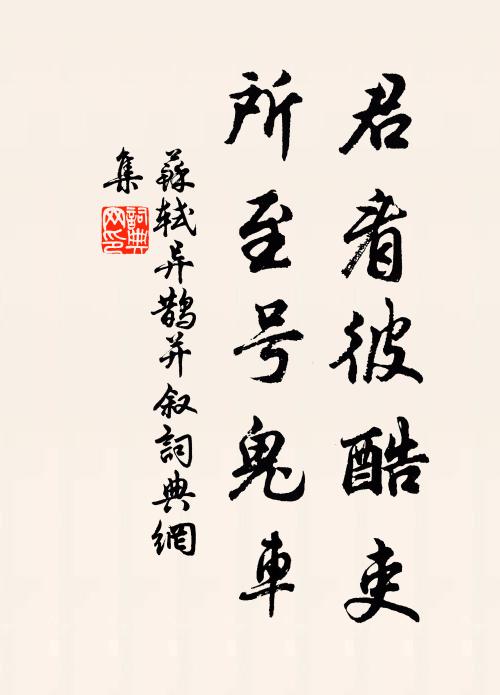 君看彼酷吏
所至号鬼車
蘇轼异鹊并叙詞典網
集
詞典
网印